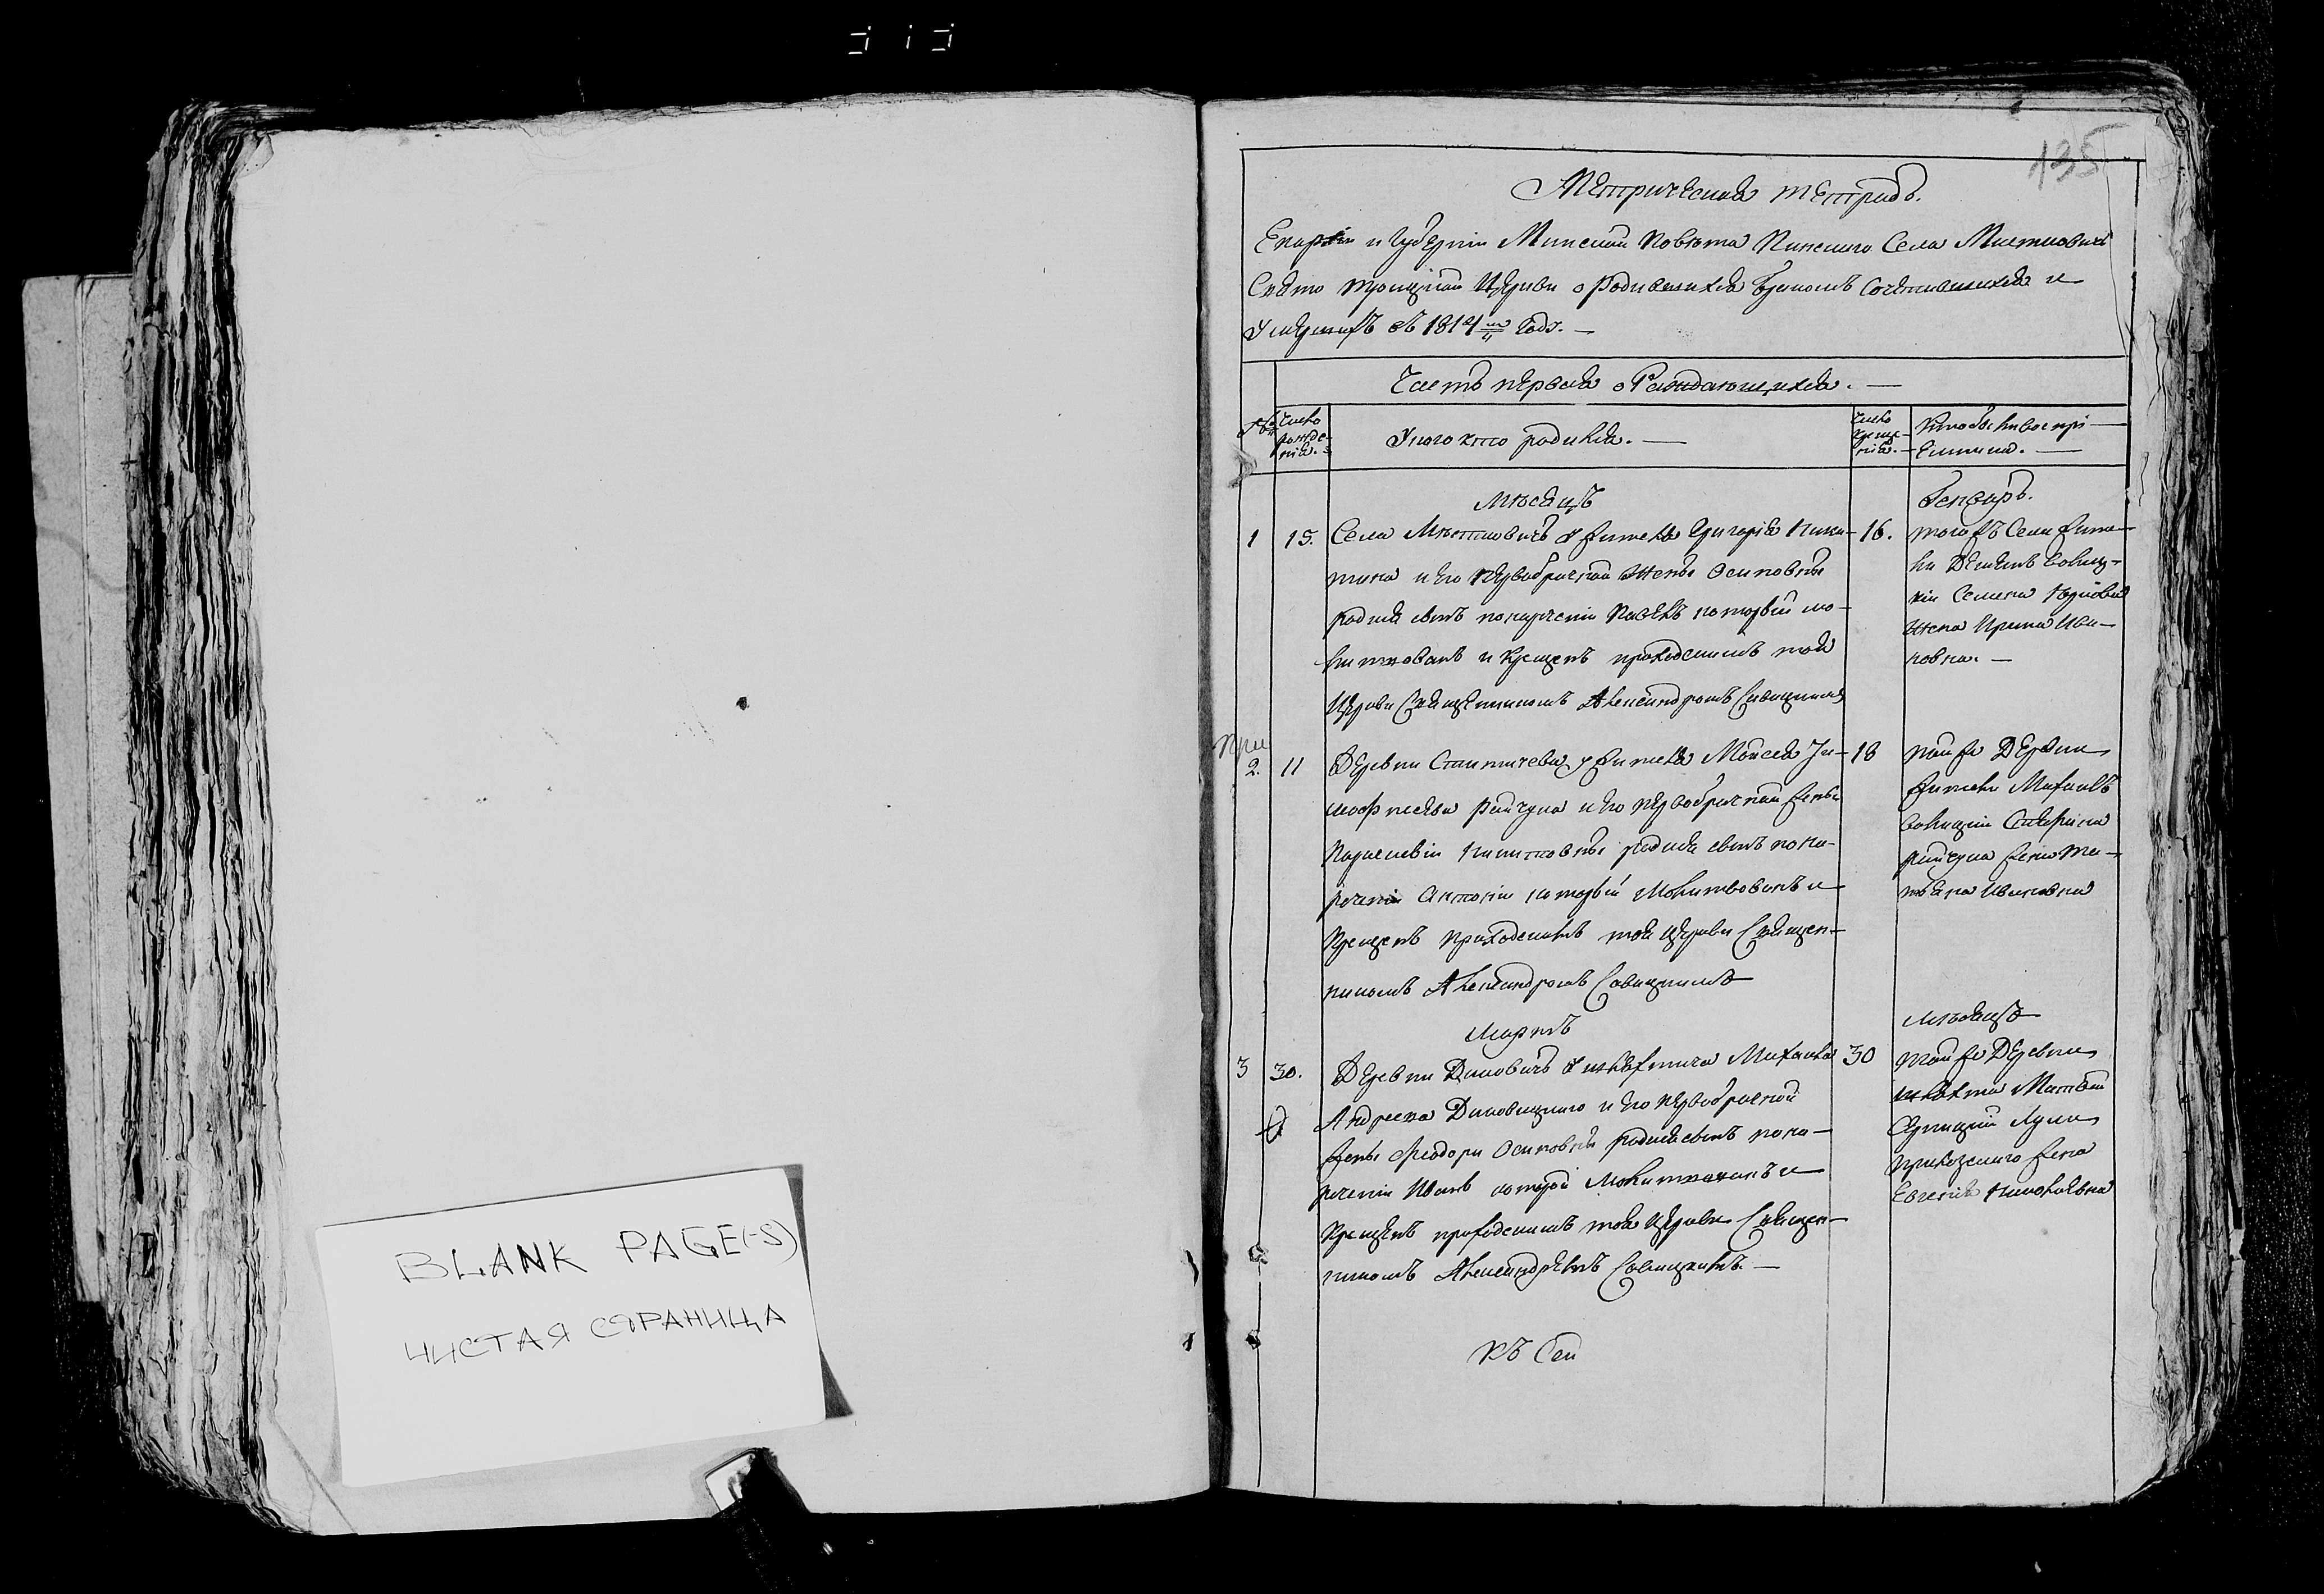 BLANK PAGE(-S)
ЧИСТАЯ СТРАНИЦА
135
Метрическая тетрадь.
Епархіи и Губерніи Минской Повѣта Пинского Села Местковичъ
Свято Троицкой Церкви о Родившихся Бракомъ Сочетавшихся и
Умершихъ въ 1814 Годъ.
Часть первая о Раждающихся.
№
Число рожденія.
У кого кто родился.
Число крещенія.
Кто былъ воспріемники.
Мѣсяцъ
Генварь.
1
15.
Села Мѣстковичъ у жителя Григорія Ники-
тина и его первобрачной жены Осиповны
родился сынъ по наречении Павелъ который мо-
литвованъ и крещенъ приходскимъ той
Церкви Священникомъ Александромъ Савицкимъ
16.
того жъ Села жите-
ли
Савиц-
кій Семена
жена Ирина Ива-
новна.
При
2.
11
Деревни у жителя Моисея Ти-
мофеева и его первобрачной жены
Параскевіи родился сынъ по на-
реченіи Антоній который Молитвованъ и
Крещенъ приходскимъ той Церкви Священ-
никомъ Александромъ Савицкимъ
18
той же Деревни
жители Михаилъ
Савицкій
жена Та-
тьяна Ивановна
Мартъ
мѣсяцъ
3
30.
Деревни Диковичъ у шляхтича Михаила
Андреева Диковицкого и его первобрачной
жены Феодоры Осиповны родился сынъ по на-
реченіи Иванъ которой Молитвованъ и
Крещенъ приходскимъ той Церкви Священ-
никомъ Александромъ Савицкимъ.
30
той же Деревни
шляхта Матвей
Луки
жена
Евгенія Николаевна
Къ Сей